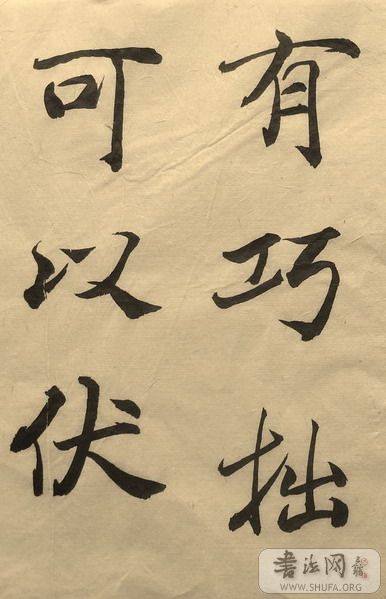 有巧拙
可以伏
书法网
WWW.SHUFA.ORG